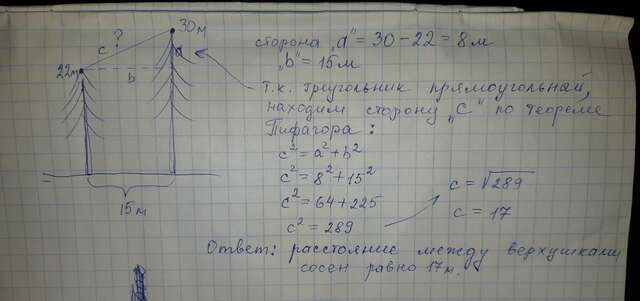 30м
?
c
a
22м
b
15м
сторона „a" = 30 − 22 = 8 м
„b" = 15 м
Т.к. треугольник прямоугольный,
находим сторону „c" по теореме
Пифагора:
c² = a² + b²
c² = 8² + 15²
c² = 64 + 225
c² = 289
c = √289
c = 17
Ответ: расстояние между верхушками
сосен равно 17 м.